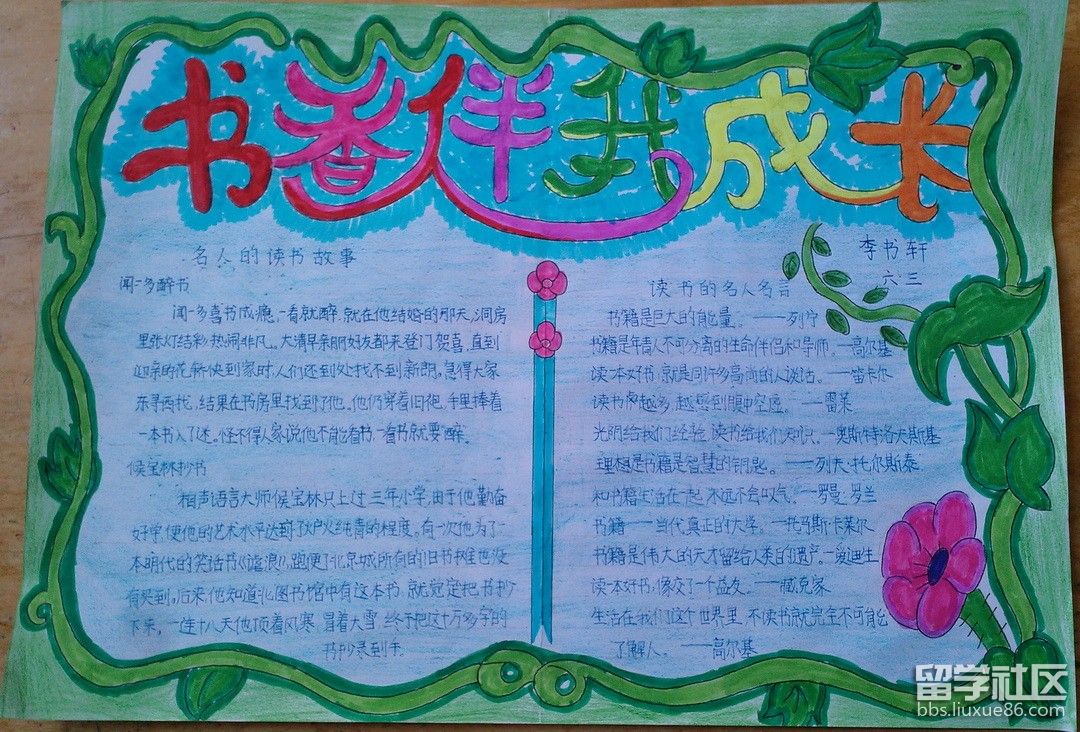 书香伴我成长
李书轩
六三
名人的读书故事
闻一多醉书
闻一多喜书成瘾,一看就醉,就在他结婚的那天,洞房
里张灯结彩,热闹非凡。大清早亲朋好友都来登门贺喜,直到
迎亲的花轿快到家时,人们还到处找不到新郎。急得大家
东寻西找,结果在书房里找到了他。他仍穿着旧袍,手里捧着
一本书入了迷。怪不得人家说他不能看书,一看书就要醉。
侯宝林抄书
相声语言大师侯宝林只上过三年小学,由于他勤奋
好学,使他的艺术水平达到了炉火纯青的程度。有一次他为了
本明代的笑话书《谑浪》,跑便了北京城所有的旧书摊也没
有买到。后来,他知道北图书馆中有这本书,就觉定把书抄
下来,一连十八天他顶着风寒,冒着大雪,终于把这十万多字的
书抄录到手。
读书的名人名言
书籍是巨大的能量。——列宁
书籍是年青人不可分离的生命伴侣和导师。—高尔基
读一本好书,就是同许多高尚的人谈话。—笛卡尔
读书越多,越感到腹中空虚。—雪莱
光阴给我们经验,读书给我们知识。—奥斯特洛夫斯基
理想是书籍是智慧的钥匙。——列夫·托尔斯泰
和书籍生活在一起,永远不会叹气。—罗曼·罗兰
书籍——当代真正的大学。—托马斯·卡莱尔
书籍是伟大的天才留给人类的遗产。—爱迪生
读一本好书,像交了一个益友。——臧克家
生活在我们这个世界里,不读书就完全不可能
了解人。——高尔基
留学社区
bbs.liuxue86.com